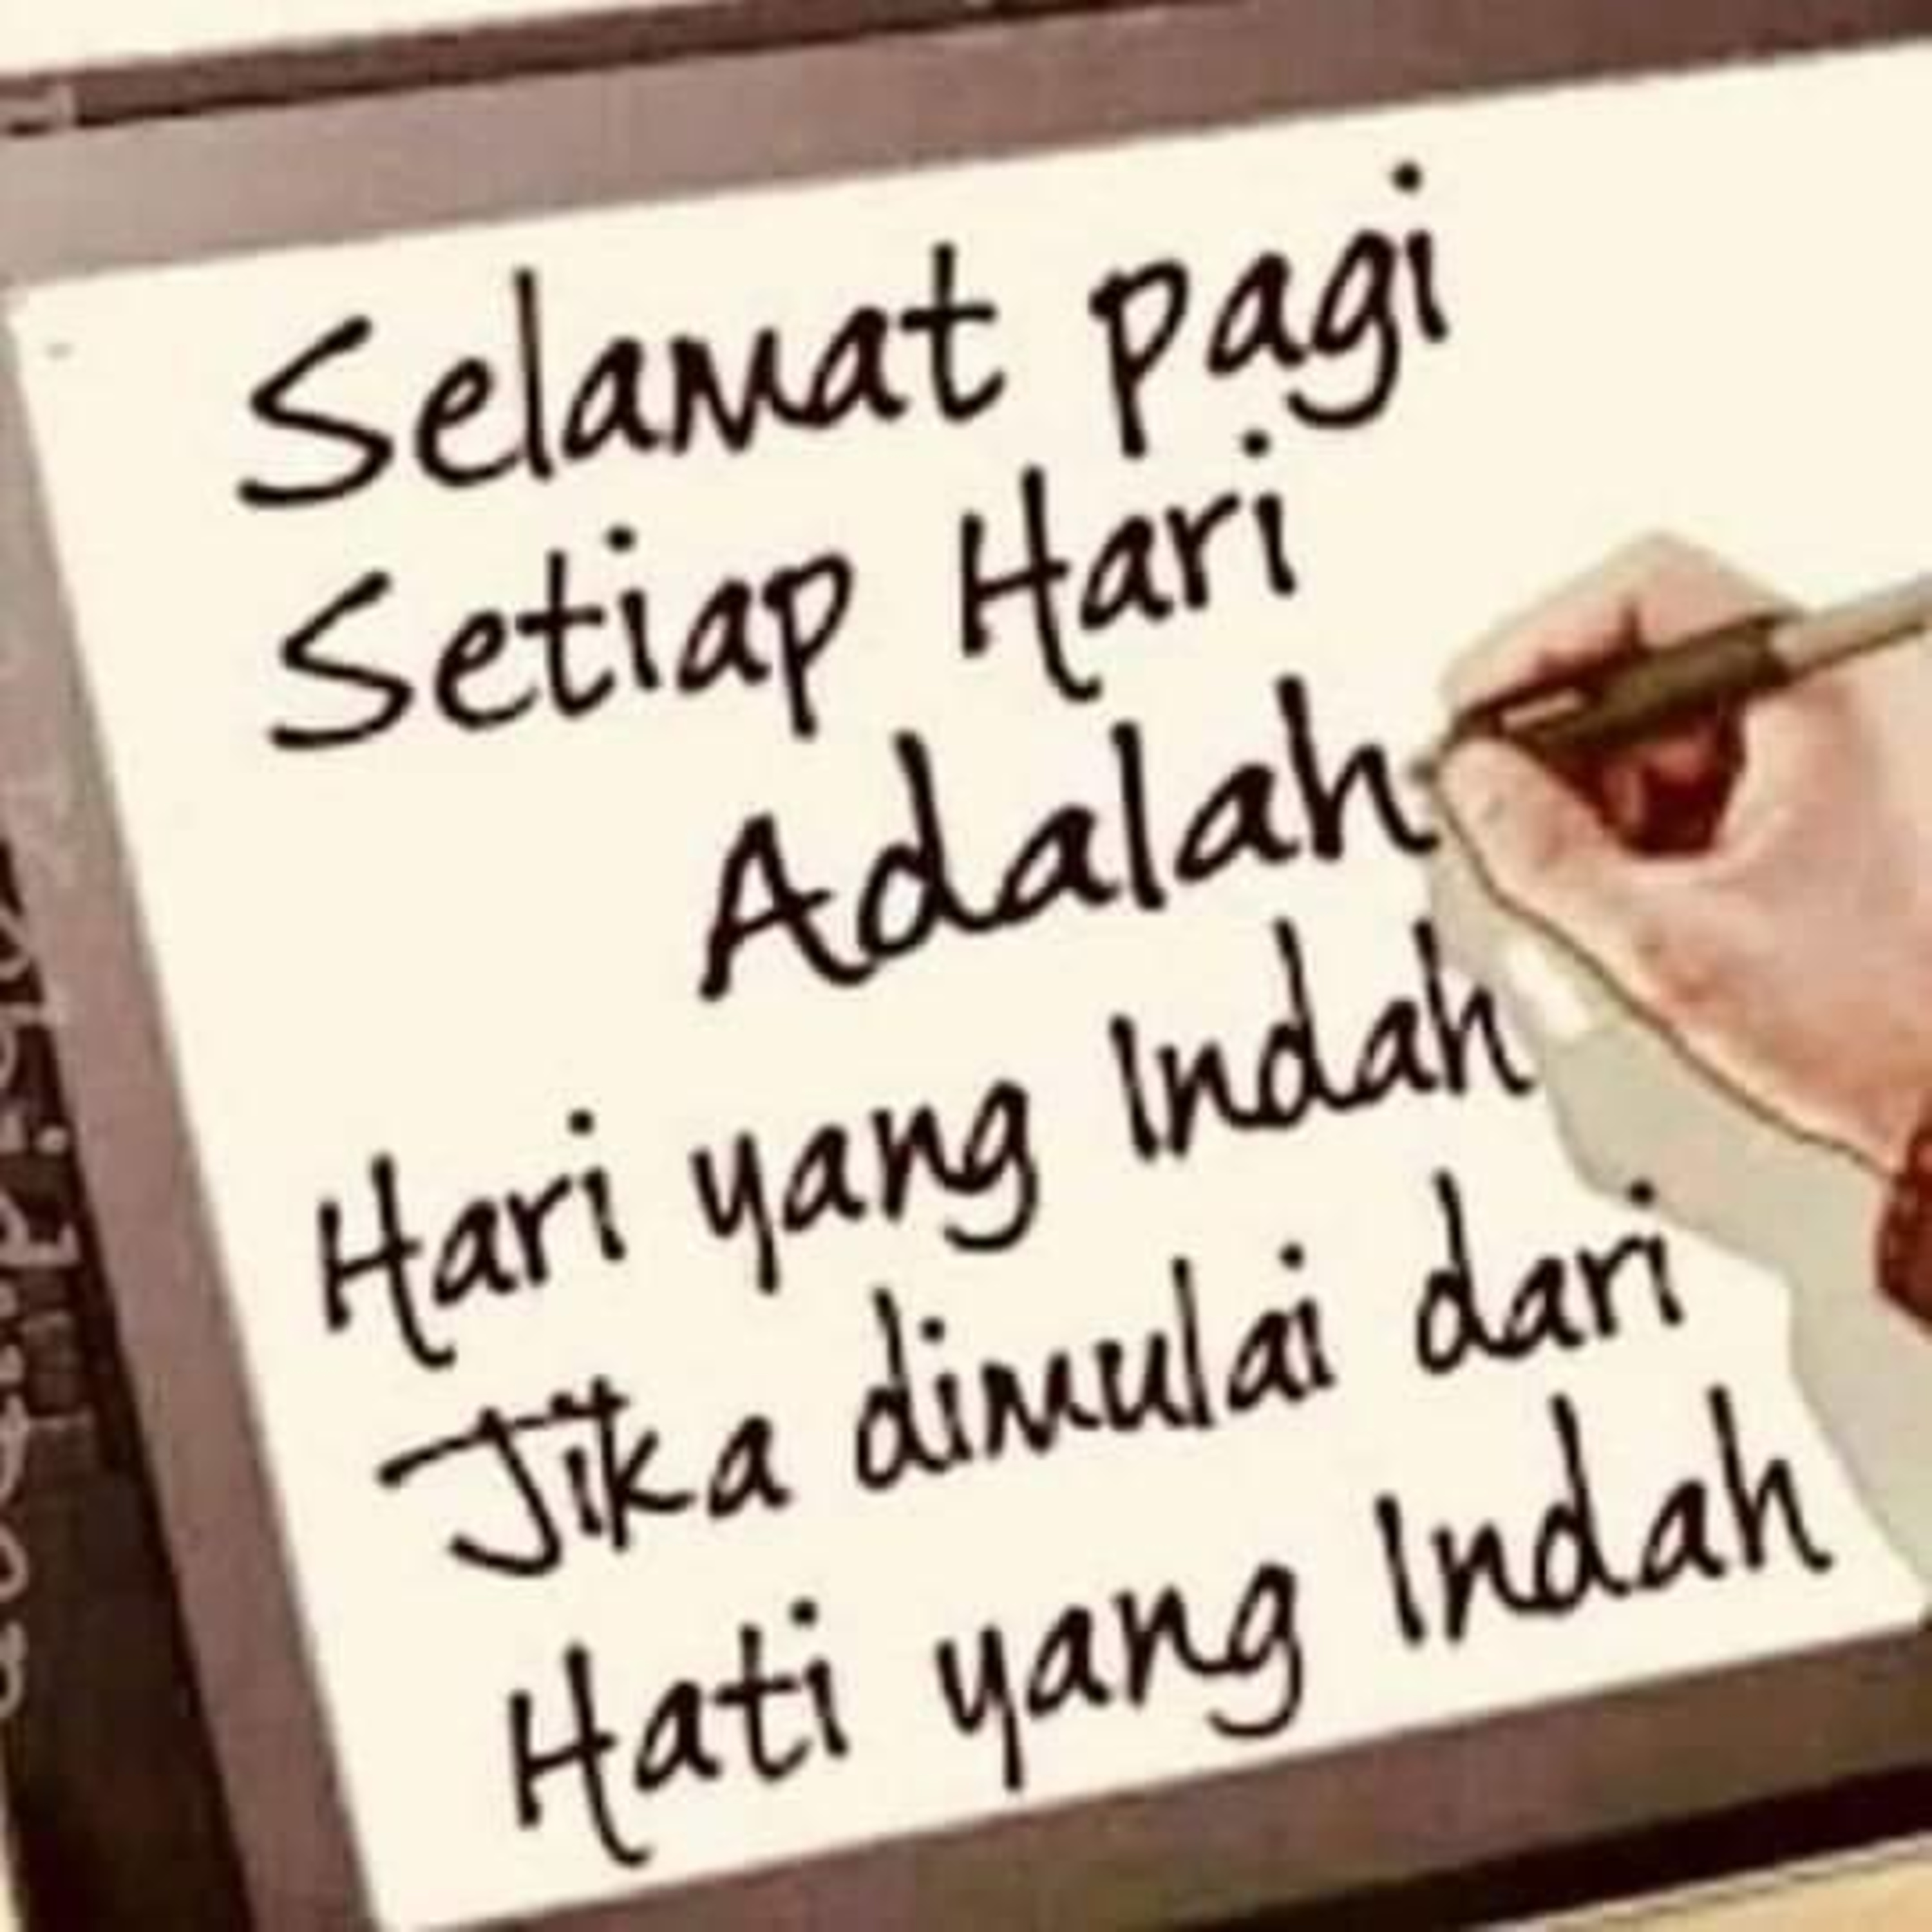 Selamat pagi
Setiap Hari
Adalah
Hari yang Indah
Jika dimulai dari
Hati yang Indah